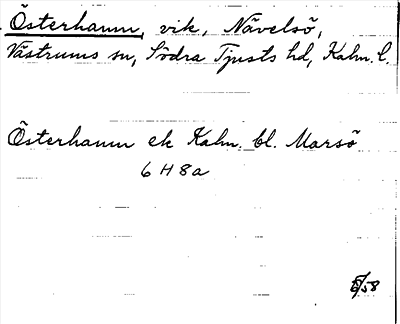 Österhamn, vik, Nävelsö,
Västrums sn, Södra Tjusts hd, Kalm. l.
Österhamn ek Kalm. bl. Marsö
6 H 8a